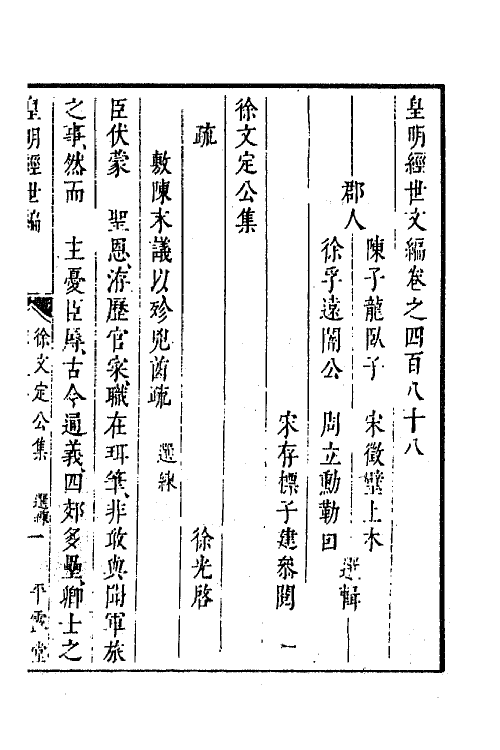 皇明經世文編卷之四百八十八
郡人
陳子龍臥子　宋徵璧上木
徐孚遠闇公　周立勳勒卣
選輯
宋存標子建叅閱　一
徐文定公集
疏　徐光啓
敷陳末議以殄兇酋疏　選練
臣伏蒙　聖恩、洊歷官家、職在珥筆、非敢與聞軍旅
之事、然而　主憂臣辱、古今通義四郊多壘、卿士之
皇明經世編　徐文定公集　選練　一　平露堂